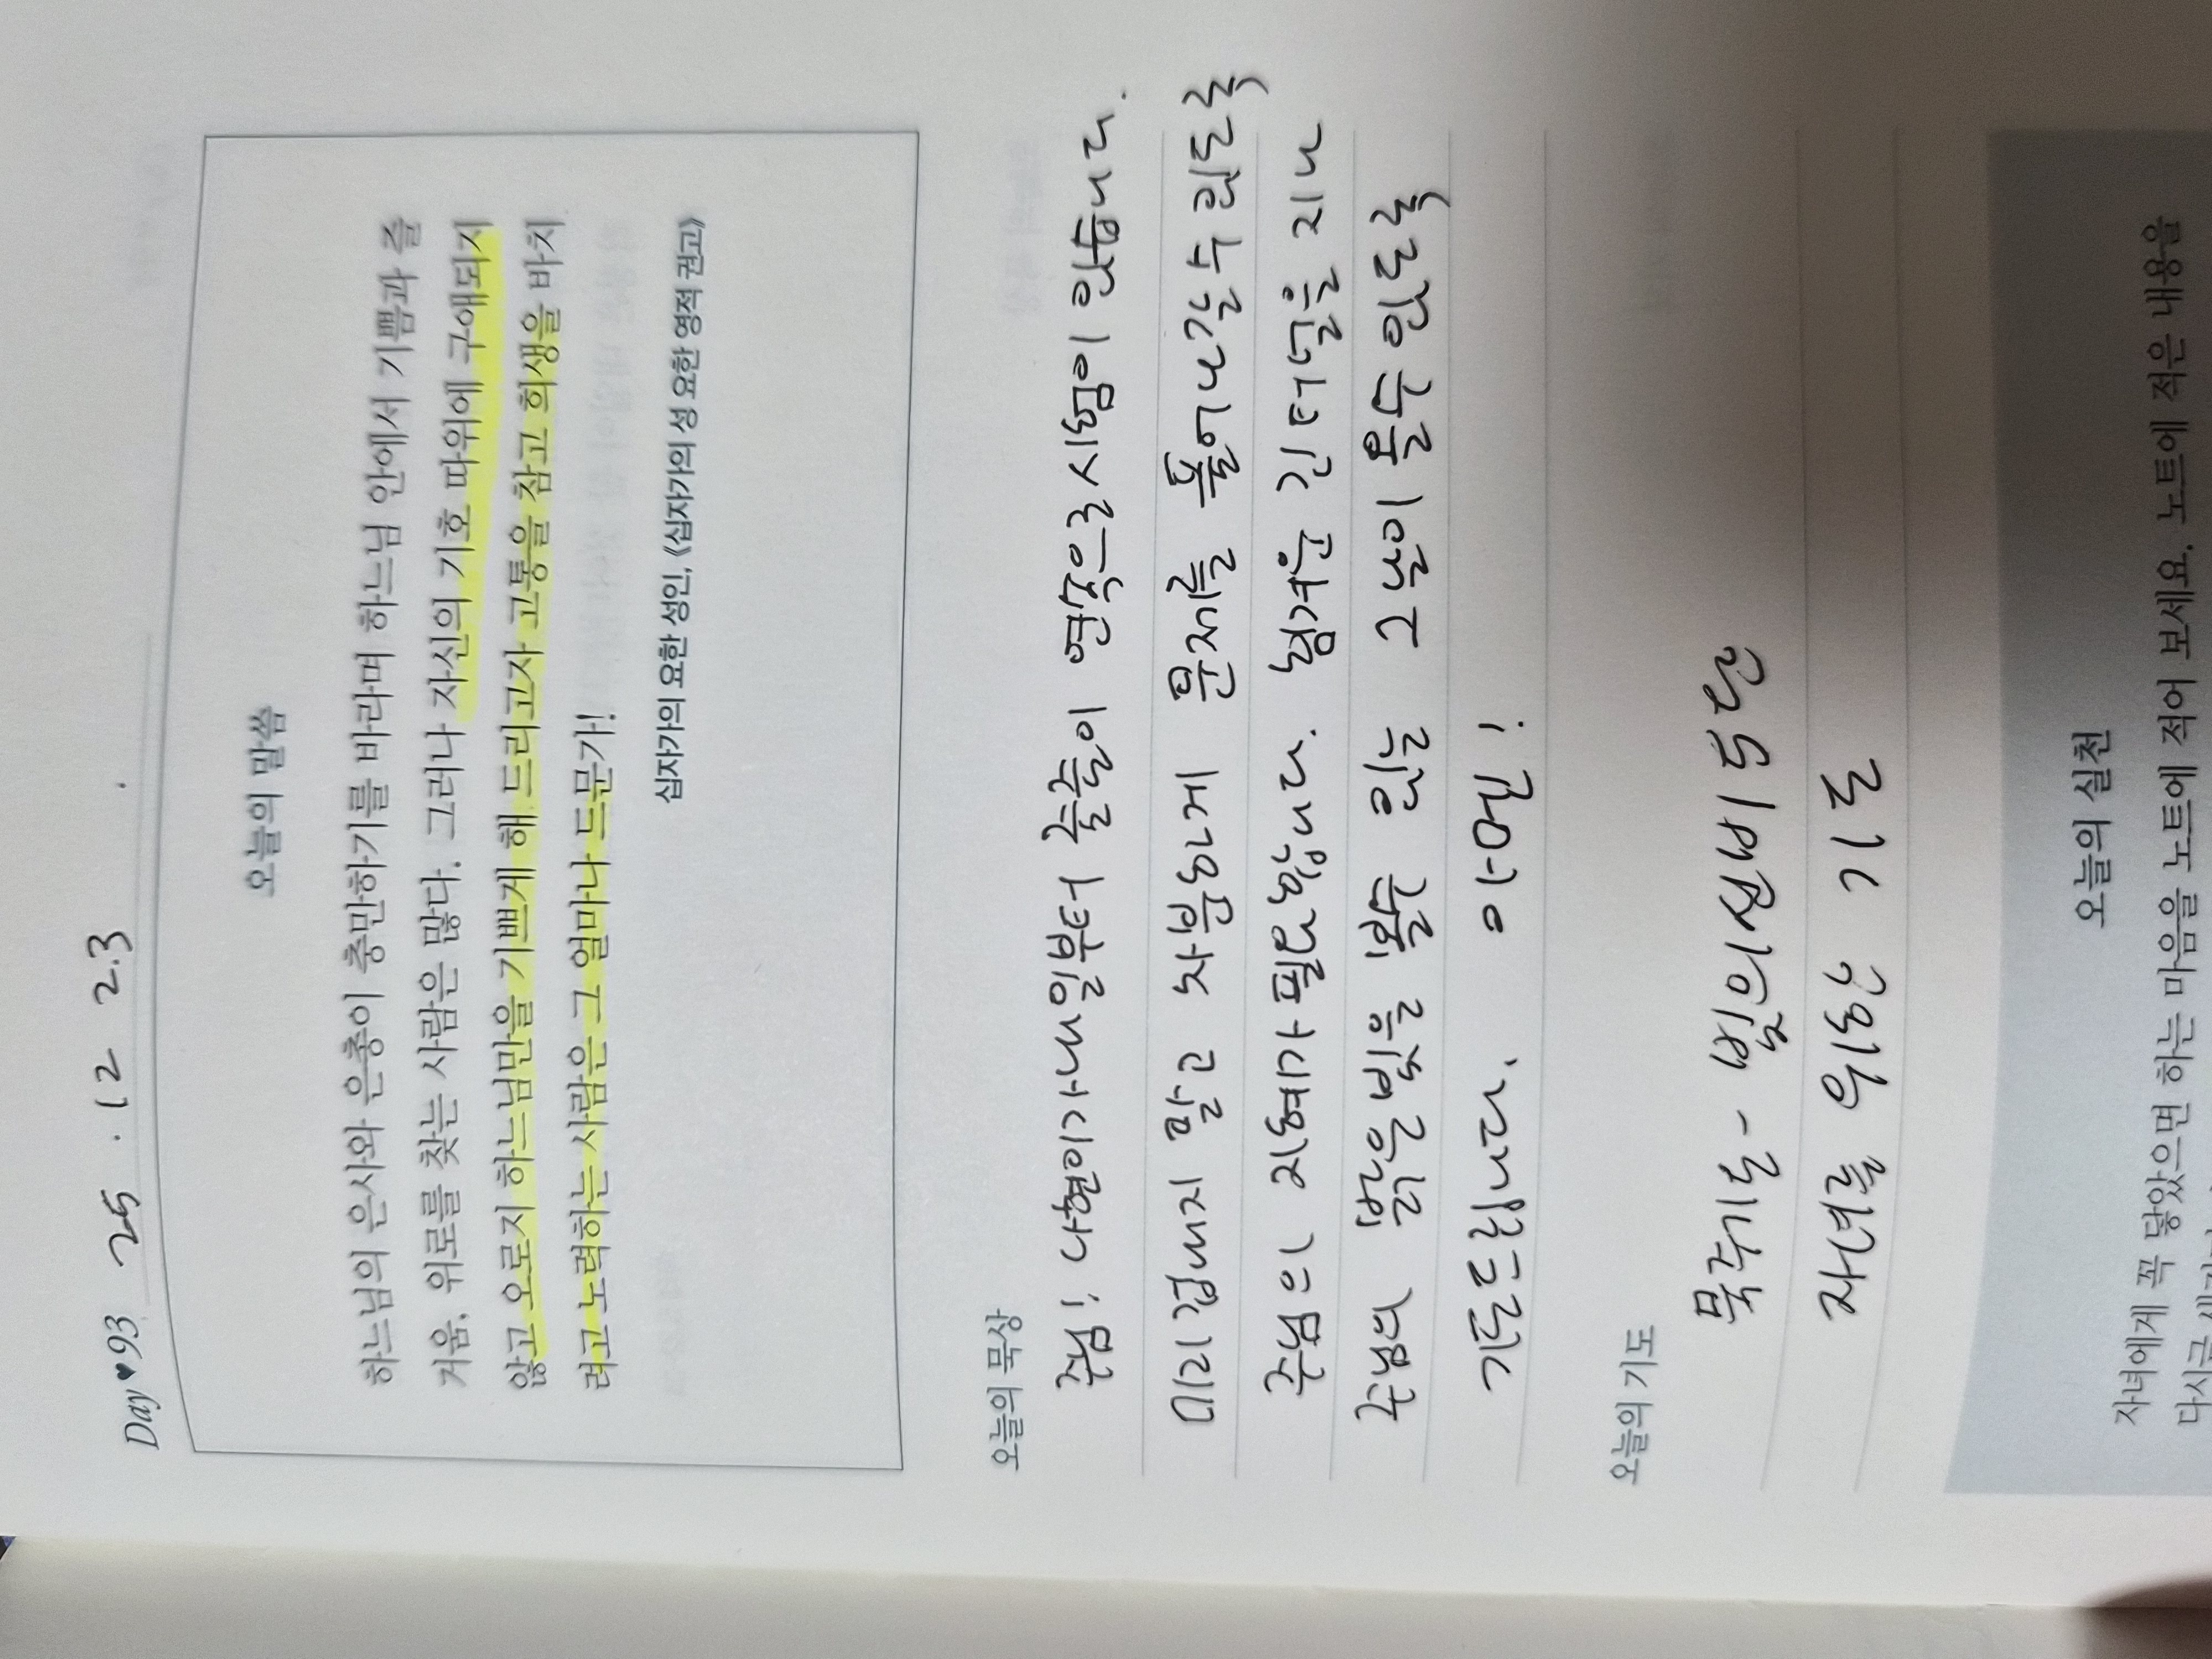 Day♥93 25 . 12 23 .
오늘의 말씀
하느님의 은사와 은총이 충만하기를 바라며 하느님 안에서 기쁨과 즐
거움, 위로를 찾는 사람은 많다. 그러나 자신의 기호 따위에 구애되지
않고 오로지 하느님만을 기쁘게 해 드리고자 고통을 참고 희생을 바치
려고 노력하는 사람은 그 얼마나 드문가!
십자가의 요한 성인, 《십자가의 성 요한 영적 권고》
오늘의 묵상
주님! 나현이가 내일부터 줄줄이 연속으로 시험이 있습니다.
미리 겁내지 말고 차분하게 문제를 풀어나갈 수 있도록
주님의 지혜가 필요합니다. 힘겨운 긴 터널을 지나
주님의 밝은 빛을 볼수 있는 그날이 올수 있도록
기도드립니다. 아멘!
오늘의 기도
묵주기도 - 빛의신비 5단
자녀를 위한 기도
오늘의 실천
자녀에게 꼭 닿았으면 하는 마음을 노트에 적어 보세요. 노트에 적은 내용을
다시금